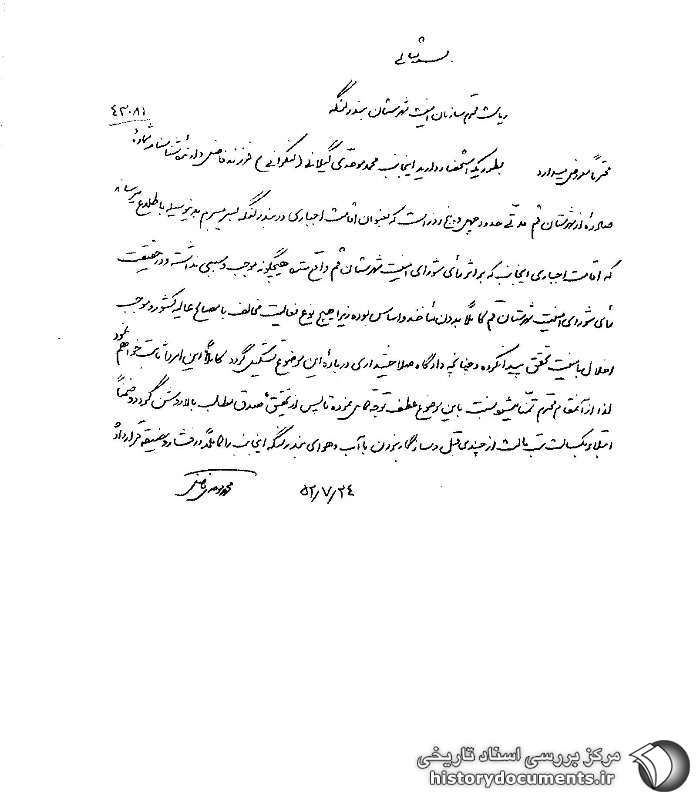 بسمه تعالی
ریاست محترم سازمان امنیت شهرستان بندر لنگه
۴۳۰۸۱
محترماً معروض میدارد بطوریکه استحضار دارید اینجانب محمد موحدی گیلانی (لنکرانی) فرزند فاضل دارنده شناسنامه شماره
صادره از شهرستان قم مدتی حدود چهل و پنج روز است که بعنوان اقامت اجباری در بندر لنگه بسر میبرم بدینوسیله باطلاع میرساند
که اقامت اجباری اینجانب که بر اثر رأی شورای امنیت شهرستان قم واقع شده هیچگونه موجب و سببی نداشته و در حقیقت
رأی شورای امنیت شهرستان قم کاملاً بدون مأخذ و اساس بوده زیرا هیچ نوع فعالیت مخالف با مصالح عالیه کشور و موجب
اخلال بامنیت تحقق پیدا نکرده و چنانچه دادگاه صلاحیتداری درباره این موضوع تشکیل گردد کاملاً این امر را ثابت خواهم نمود
لذا از آنمقام محترم تمنا میشود نسبت باین موضوع عطف توجه خاص نموده تا پس از تحقیق صدق مطلب بالا روشن گردد و ضمناً
ابتلا بکسالت از چندی قبل و سازگار نبودن با آب و هوای بندر لنگه اینجانب را کاملاً در فشار و مضیقه قرار داده
۵۲/۷/۲۴
مرکز بررسی اسناد تاریخی
historydocuments.ir